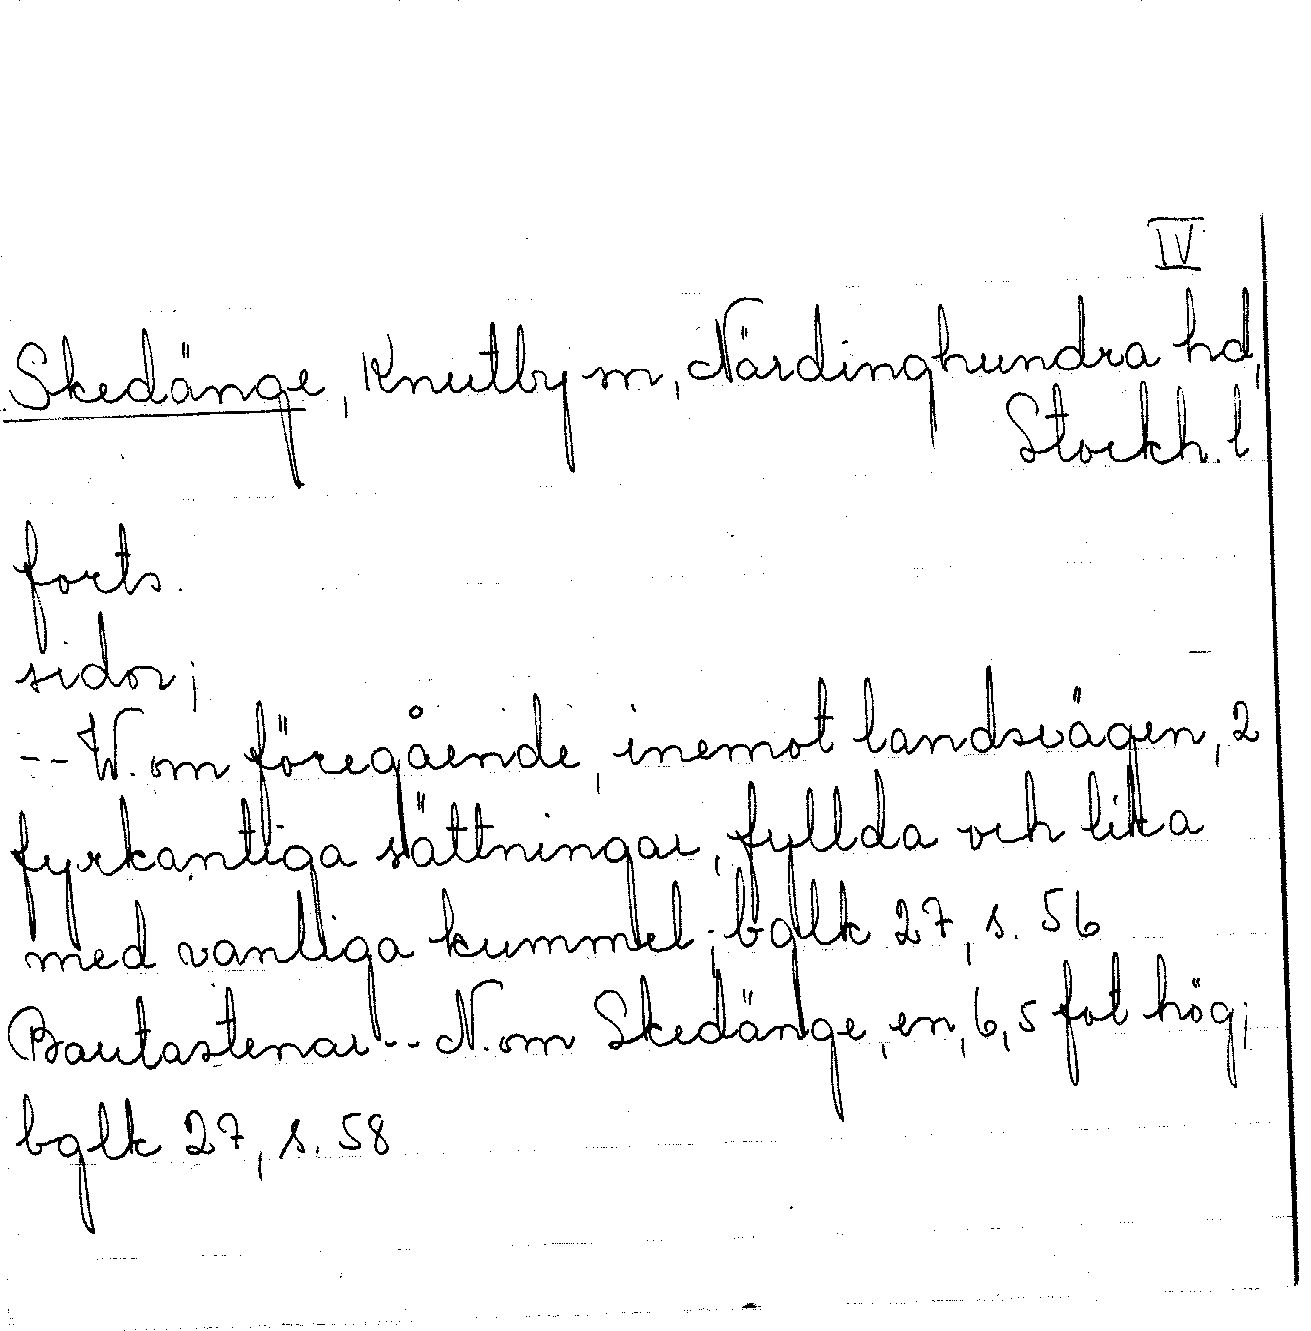 IV
Skedänge, Knutby sn, Närdinghundra hd,
Stockh. l
forts.
sidor;
-- W. om föregående, inemot landsvägen, 2
fyrkantiga sättningar, fyllda och lika
med vanliga kummel; bglk 27, s. 56
Bautastenar -- N. om Skedänge, en, 6,5 fot hög;
bglk 27, s. 58